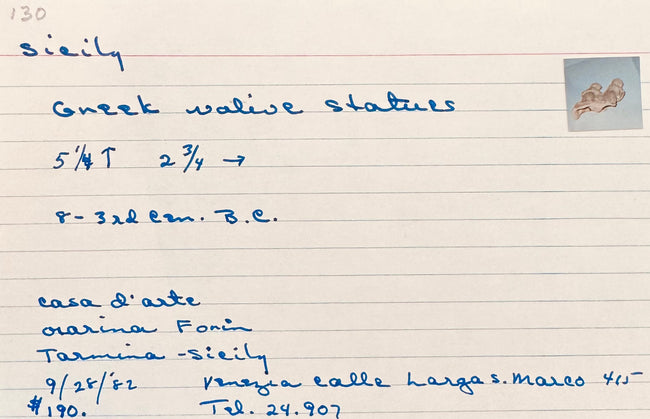 130
Sicily
Greek votive statues
5 1/4 ↑ 2 3/4 →
8 - 3rd Cen. B.C.
casa d'arte
Tarmina - Sicily
9/28/'82 Venezia calle Larga S. Marco 415
$190. Tel. 24.907